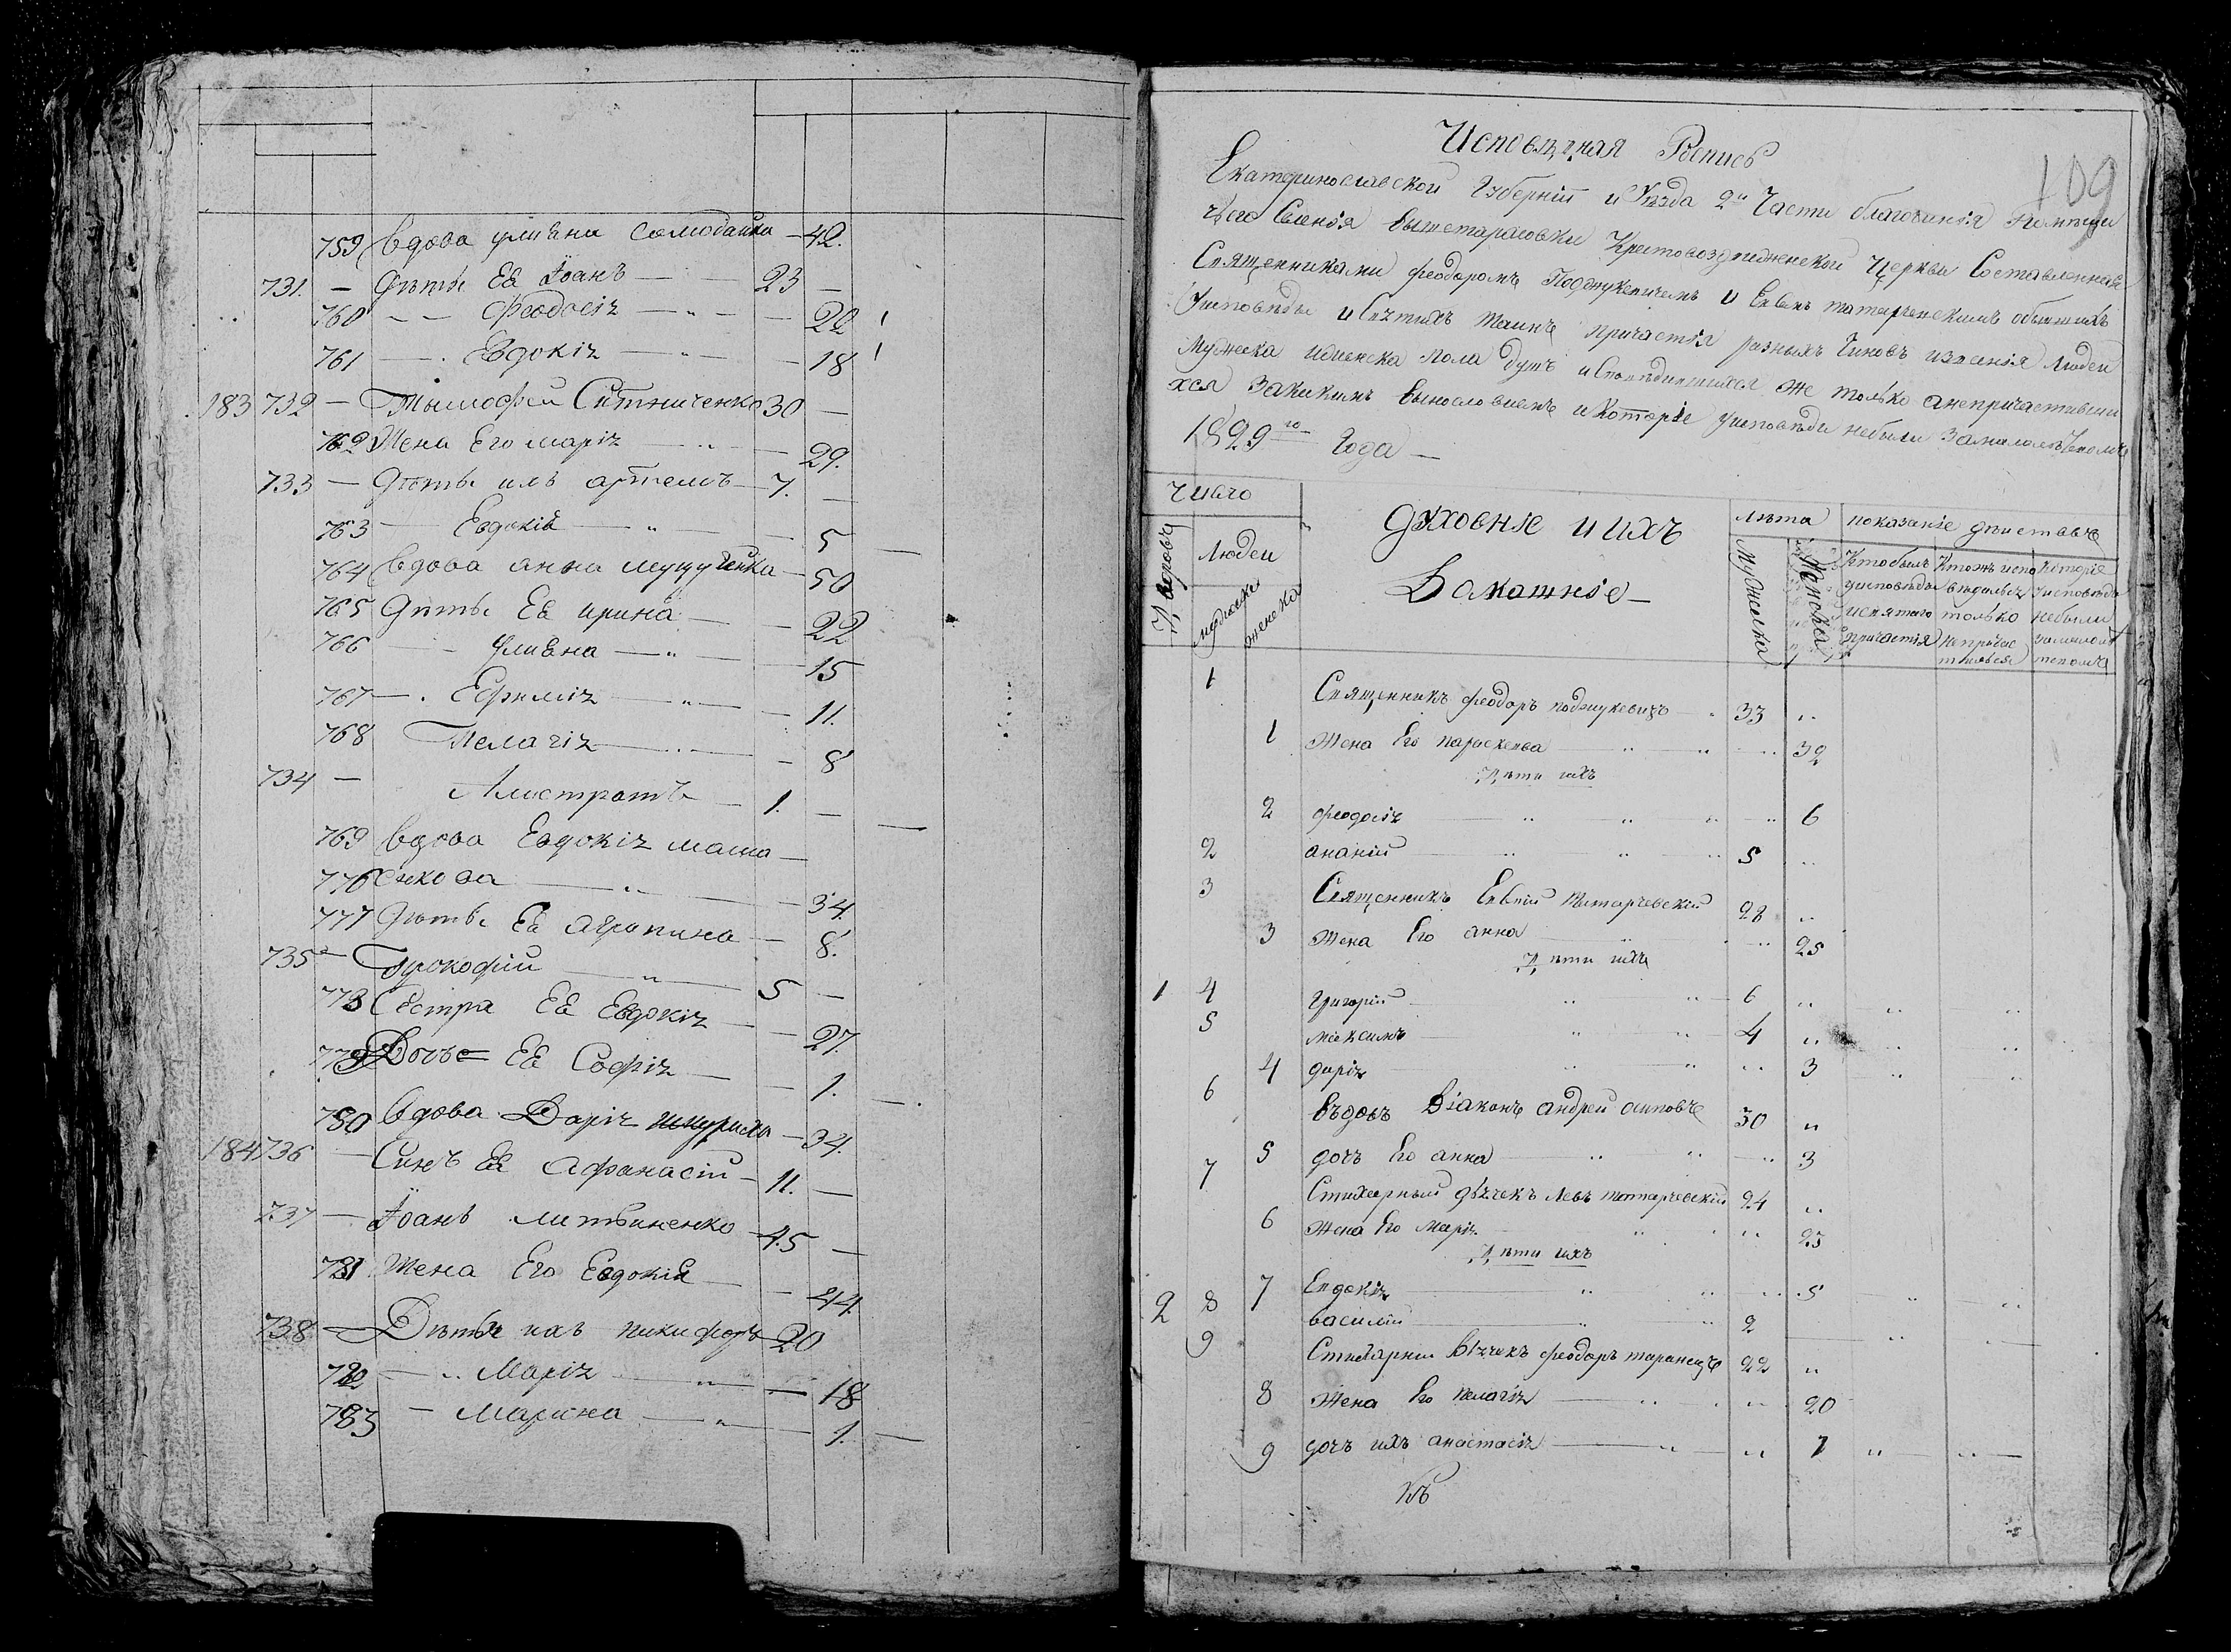 759 вдова улияни Самодайка — 42.
731. — Дѣты Еѣ Іоанъ — 23 —
760 — — Феодосіа — „ — — 22
761 — . Евдокіа — „ — — 18
183 732 — Тымофей Ситниченко 30 —
762 Жена Его маріа — „ — 29.
733 — Дѣты ихъ артемъ — 7. —
763 — Евдокія — „ — 5 —
764 вдова анна — 50
765 Дѣты Еѣ ирина — — 22
766 — — улияна — „ — — 15
767 — . Ефиміа — „ — — 11.
768 Пелагіа — „ — — 8
734 — Алистратъ — 1. — —
769 вдова Евдокіа маша —
776 — „ — — 34.
777 Дѣты Еѣ Агрипина — 8.
735 — Прокофій — „ — 5 —
778 Сестра Еѣ Евдокіа — — 27.
779 Дочь Еѣ Софіа — — 1. — .
780 вдова Даріа — 34.
184 736 — Синъ Еѣ Афанасій — 11. —
737 — Іоанъ литвиненко — 45 —
781 Жена Его Евдокія — — 44.
738 — Дѣты ихъ никифоръ — 20
782 — „ Маріа — „ — — 18
783 — Марина — „ — 1. —
109
Исповѣдная Роспись
Екатеринославской Губерніи и Уѣзда 2й Части благочинія
Селенія вышетарасовки Крестовоздвиженской Церкви Составленная
Священниками феодоромъ и Евѳ. татарчевскимъ обывшихъ
Уисповѣды и Святихъ таинъ причастія разныхъ Чиновъ изванія людей
Мужеска иженска пола душъ исповѣдившихся же только анепричастивши
хся Закикимъ винословіемъ икоторіе уисповѣди небыли
1829го Года —
Число
Духовніе и ихъ
Домашніе —
лѣта
показаніе дѣиствъ
Дворовъ
людей
мужеска
женска
мужеска
Женска
Кто былъ уисповѣды исвятаго причастія
Ктожъ испо вѣдался только непричас тился
которіе уисповѣди небыли
1 Священникъ феодоръ — 33 „
1 Жена Его параскева — „ „ — „ 32
Дѣти ихъ
2 феодосіа — „ „ „ — „ 6
2 ананій — „ „ „ 5 „
3 Священникъ Евѳій татарчевскій 28 „
3 Жена Его анна — „ — „ 25
Дѣти ихъ
1 4 Григорій — „ „ — 6 „ „ „
5 максимъ — „ „ — 4 „ „ „
4 даріа — „ „ „ 3 „ „
6 въдовъ Діаконъ андрей осиповъ 30 „
5 дочъ Его анна — „ „ — „ 3
7 Стихарный дячекъ левъ татарчевскій 24 „
6 Жена Его Маріа — „ „ „ 23
Дѣти ихъ
7 Евдокіа — „ „ „ 5 „ „
2 8 василій — „ „ 2 — „ —
9 Стихарни Дячекъ феодоръ таранецъ 22 „
8 Жена Его пелагіа — „ „ „ 20
9 дочъ ихъ анастасіа — „ — „ 1 „ — „ —